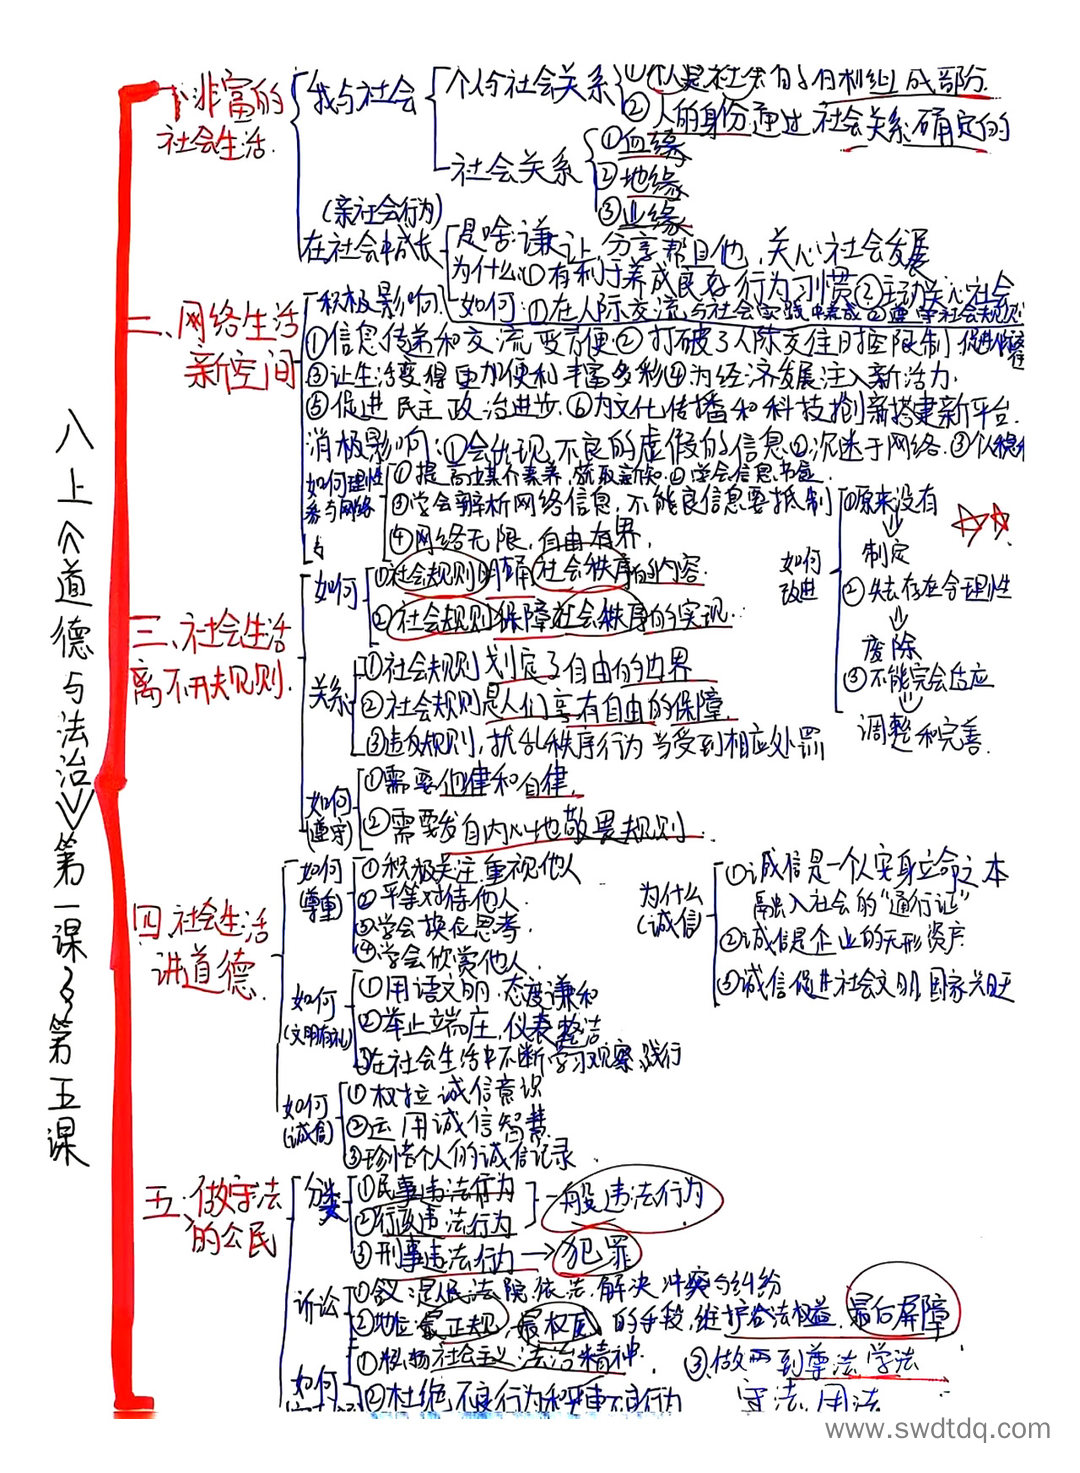 八上《道德与法治》第一课~第五课
一、丰富的
社会生活.
我与社会
个人与社会关系
①个人是社会的有机组成部分.
②人的身份是通过社会关系确定的
社会关系
①血缘
②地缘
③业缘
(亲社会行为)
在社会中成长
是啥:谦让、分享帮助他人、关心社会发展
为什么:①有利于养成良好行为习惯②主动关心社会
如何:①在人际交流与社会实践中养成②遵守社会规则
二、网络生活
新空间
积极影响:
①信息传递和交流变方便②打破了人际交往时空限制
③让生活变得更加便利丰富多彩④为经济发展注入新活力.
⑤促进民主政治进步.⑥为文化传播和科技创新搭建新平台.
消极影响:①会出现不良的虚假的信息②沉迷于网络.③
如何理性
参与网络
①提高媒介素养,获取新知.②学会信息节食
③学会辨析网络信息,不能良信息要抵制
④网络无限,自由有界.
三、社会生活
离不开规则.
如何
①社会规则明确社会秩序的内容.
②社会规则保障社会秩序的实现.
关系
①社会规则划定了自由的边界
②社会规则是人们享有自由的保障.
③违反规则,扰乱秩序行为当受到相应处罚
如何
(遵守)
①需要他律和自律.
②需要发自内心地敬畏规则.
如何
改进
①原来没有
制定
②失去存在合理性
废除
③不能完全适应
调整和完善.
四.社会生活
讲道德.
如何
(尊重)
①积极关注、重视他人
②平等对待他人.
③学会换位思考.
④学会欣赏他人.
如何
(文明有礼)
①用语文明、态度谦和
②举止端庄、仪表整洁
③在社会生活中不断学习、观察、践行
如何
(诚信)
①树立诚信意识
②运用诚信智慧.
③珍惜个人的诚信记录.
为什么
(诚信)
①诚信是一个人安身立命之本
融入社会的"通行证"
②诚信是企业的无形资产
③诚信促进社会文明、国家兴旺
五.做守法
的公民
分类
①民事违法行为
②行政违法行为
一般违法行为
③刑事违法行为→犯罪
诉讼
①含义:是人民法院依法解决冲突与纠纷
②地位:最正规、最权威的手段,维护合法权益,最后屏障
如何
①弘扬社会主义法治精神.
②杜绝不良行为和严重不良行为
③做到尊法学法
守法、用法.
www.swdtdq.com